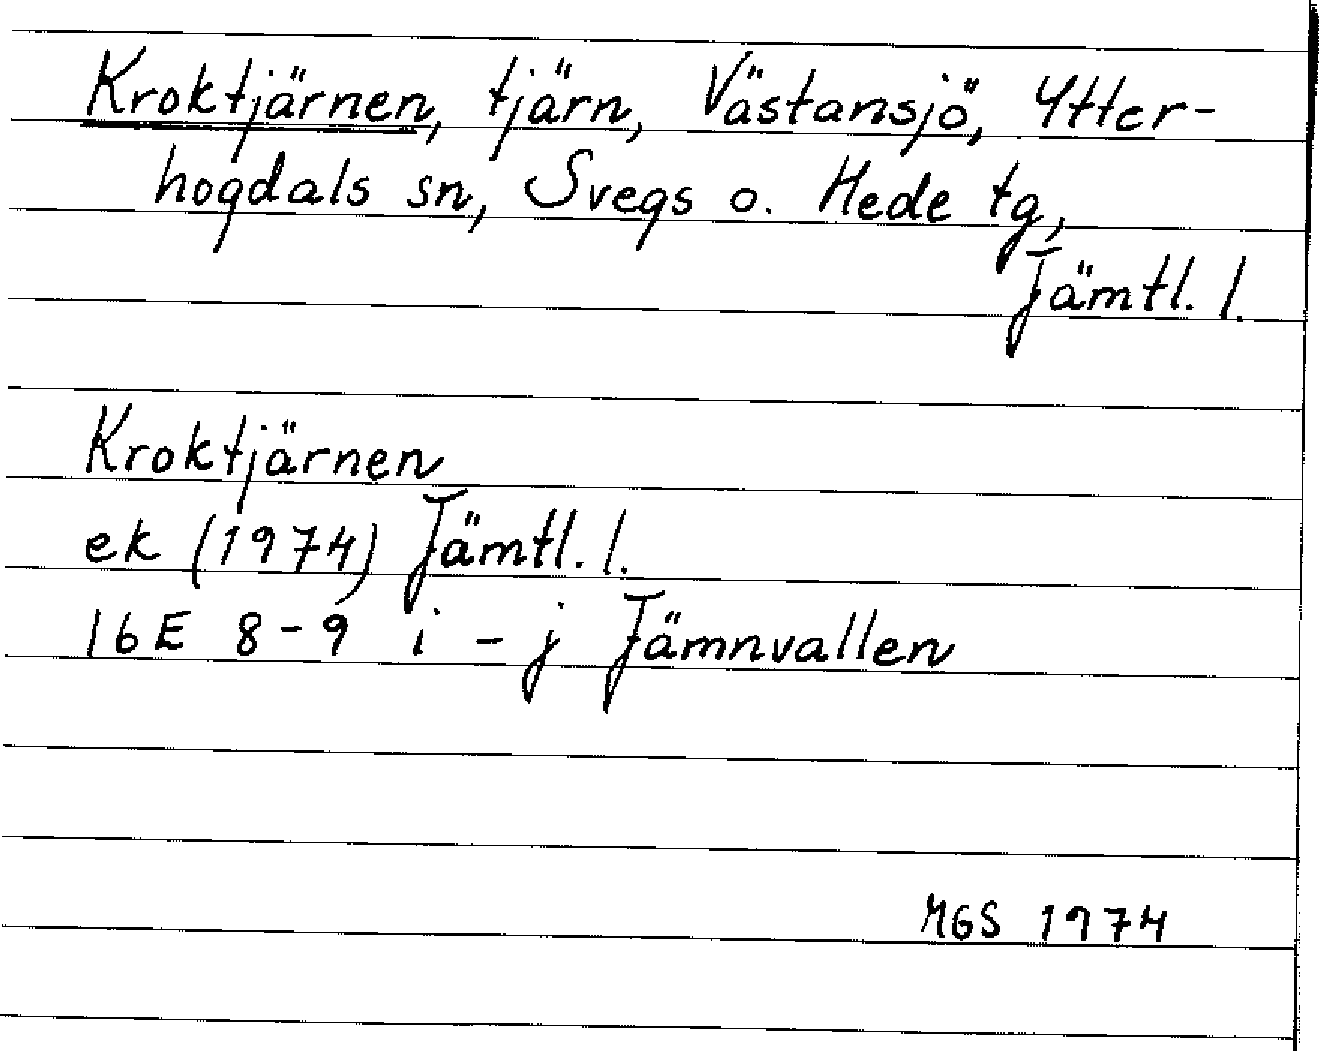 Kroktjärnen, tjärn, Västansjö, Ytter-
hogdals sn, Svegs o. Hede tg,
Jämtl. l.
Kroktjärnen
ek (1974) Jämtl. l.
16E 8-9 i - j Jämnvallen
MGS 1974